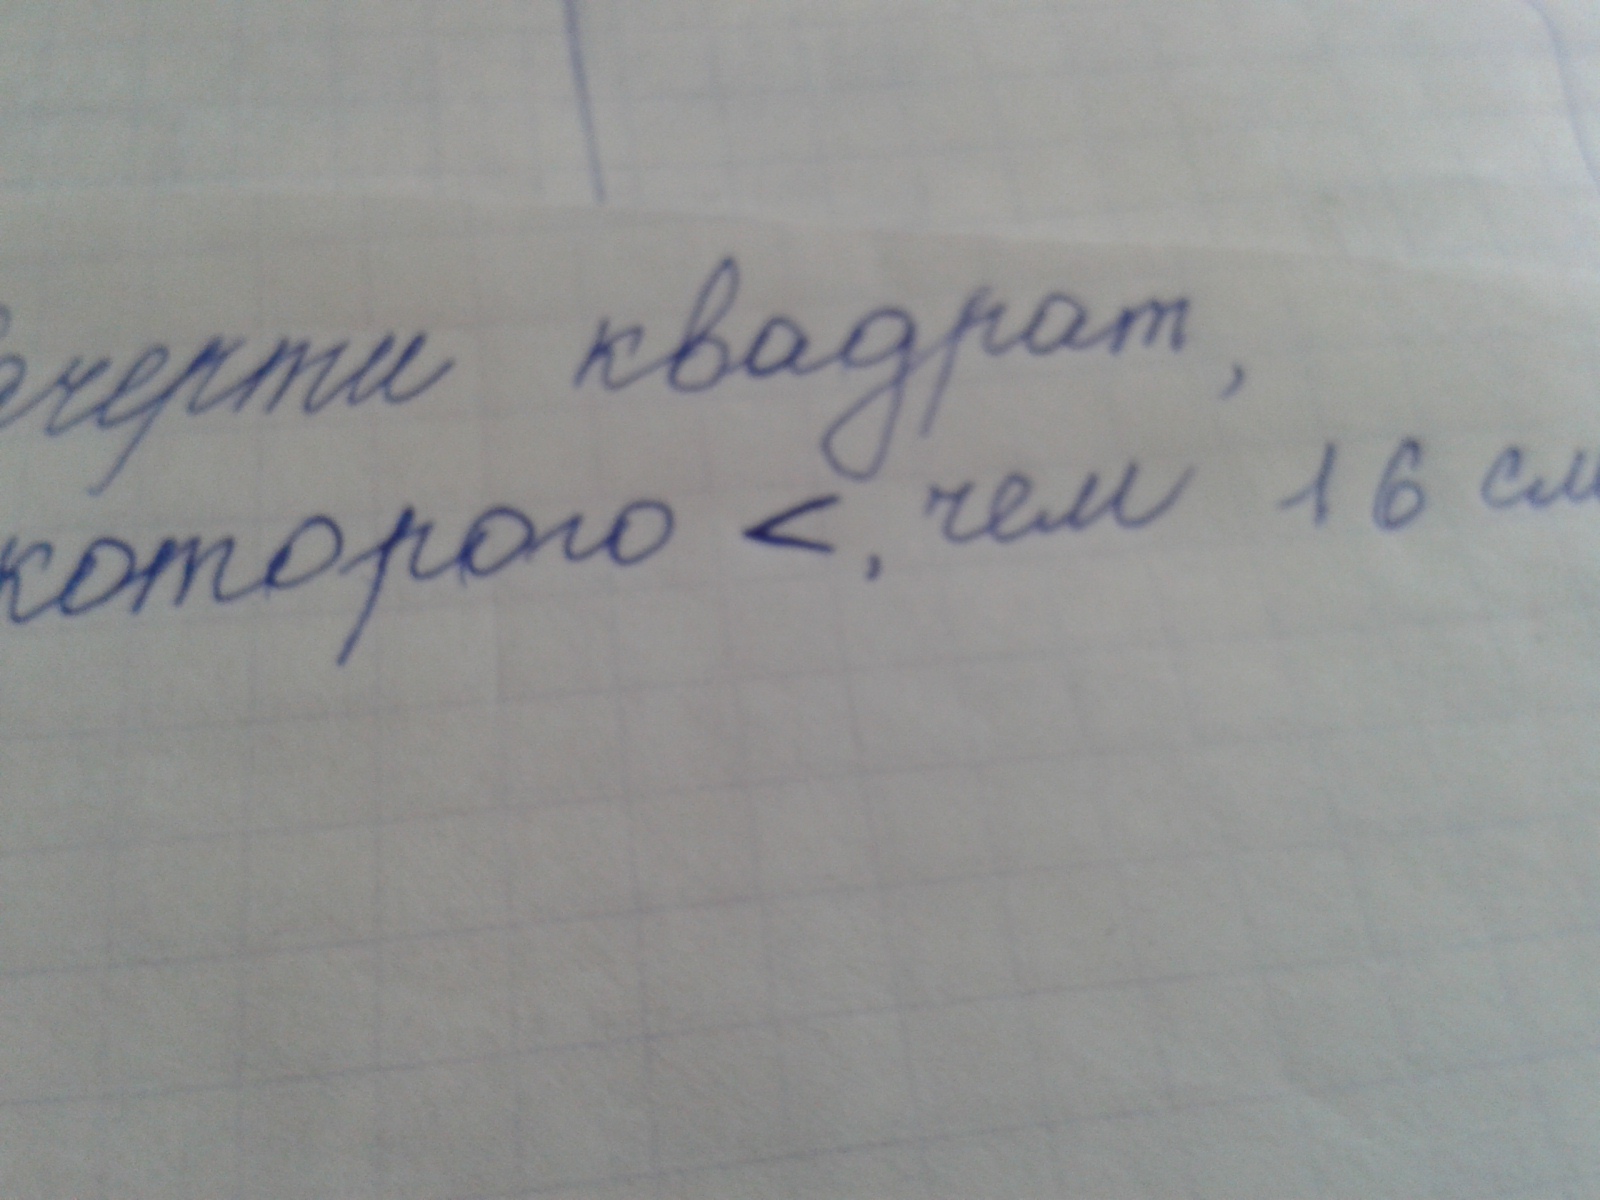 ачерти квадрат,
которого <, чем 16 см